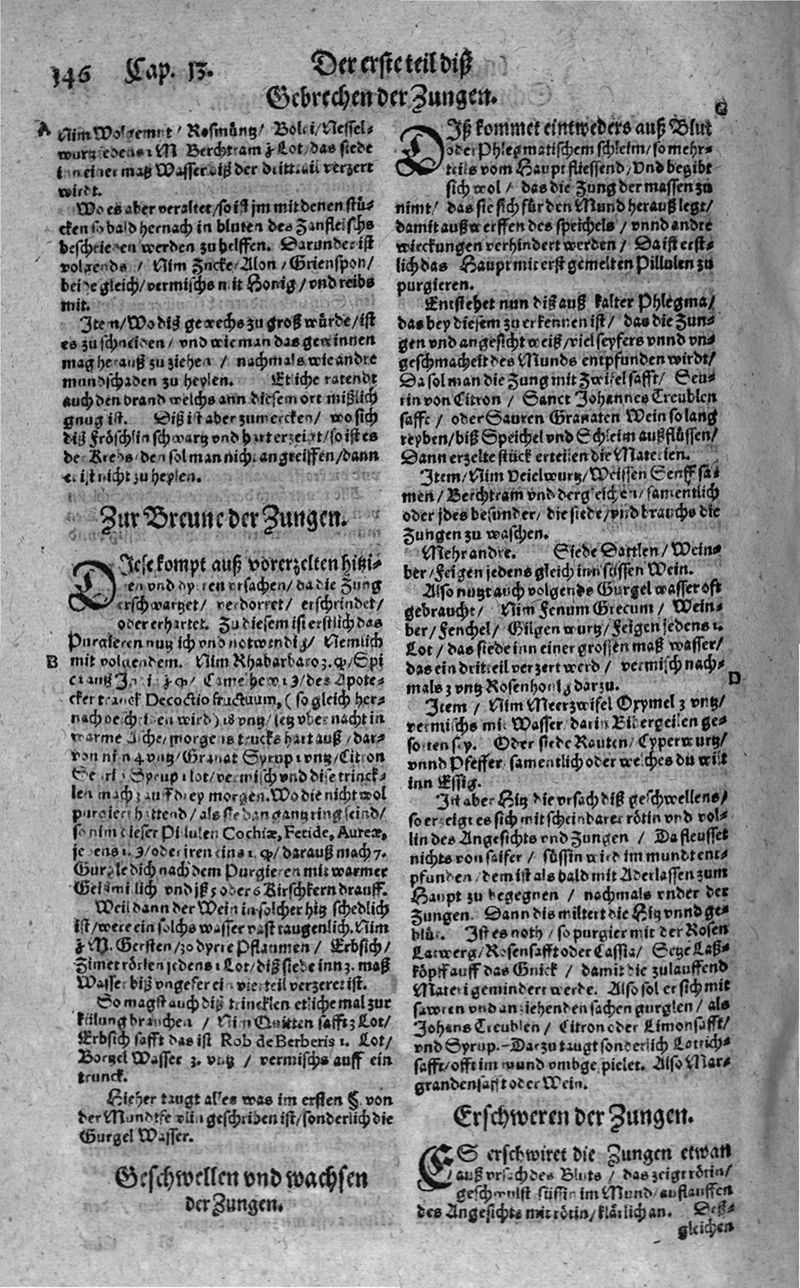 146 Cap. 13. Der erste teil diß
Gebrechen der Zungen.
A Nim Wolgemut / Roßmüntz / Bolei / Nessel-
wurtz jedens M Berchtram Lot / das siede
inn einer maß Wasser biß der dritteil verzert
wirdt.
Wo es aber veraltet / so ist jm mit denen stü-
cken so bald hernach in bluten des Zanfleischs
beschrieben werden zu helffen. Darunder ist
volgends / Nim Zucker Alon / Grienspon /
beide gleich / vermischs mit Honig / vnd reibs
mit.
Item / Wo diß gewechs zu groß würde / ist
es zu schneiden / vnd wie man das gewinnen
mag herauß zu ziehen / nachmals wie andre
mundschaden zu heylen. Etliche ratendt
auch den brand welchs ann diesem ort mißlich
gnug ist. Diß ist aber zu mercken / wo sich
diß Fröschlin schwartz vnd hart erzeigt / so ist es
der Krebs / den sol man nicht angreiffen / dann
er ist nicht zu heylen.
Zur Breune der Zungen.
DIese kompt auß vorerzelten hitzi-
gen vnd dürren vrsachen / da die Zung
erschwartzet / verdorret / erschrindet /
oder erhartet. Zu diesem ist erstlich das
Purgieren nutzlich vnd notwendig / Nemlich
B mit volgendem. Nim Rhabarbaro
des Apote-
cker tranck Decoctio fructuum, (so gleich her-
nach beschrieben wird) vntz / setz vber nacht in
warme Asche / morgens trucks hart auß / dar-
von nim 4 vntz / Granat Syrup vntz / Citron
Syrup lot / vermisch vnd dise trinck-
len mach auff drey morgen. Wo die nicht wol
purgiern thettend / als sie dan gantz ring seind /
so nim dieser Pillulen Cochiæ, Fetide, Aureæ,
jedens oder jren eins darauß mach 7.
Gurgle dich nach dem Purgieren mit warmer
Geißmilch vnd iß 5 oder 6 Kirschkern drauff.
Weil dann der Wein in solcher hitz schedlich
ist / were ein solchs wasser vast tauglich. Nim
M. Gersten / 20 dürre Pflaumen / Erbsich /
Zimetrörlen jedens 1 Lot / diß siede inn 3. maß
Wasser biß vngefer ein vierteil verzeret ist.
So magst auch diß trincklen etliche mal zur
külung brauchen / Nim Quitten safft 3 Lot /
Erbsich safft das ist Rob de Berberis 1. Lot /
Borgel Wasser 3. vntz / vermischs auff ein
trunck.
Hieher taugt alles was im ersten §. von
der Mundtfeulin geschriben ist / sonderlich die
Gurgel Wasser.
Geschwellen vnd wachsen
der Zungen.
C
DIß kommet eintweders auß Blut
oder Phlegmatischem schleim / so mehr-
teils vom Haupt fliessend / Vnd begibt
sich wol / das die Zung der massen zu
nimt / das sie sich für den Mund herauß legt /
damit außwerffen des speichels / vnnd andre
wirckungen verhindert werden / Da ist erst-
lich das Haupt mit erst gemelten Pillulen zu
purgieren.
Entstehet nun diß auß kalter Phlegma /
das bey diesem zu erkennen ist / das die Zun-
gen vnd angesicht weiß / viel seyfers vnnd vn-
geschmacheit des Munds entpfunden wirdt /
Da sol man die Zung mit Zwifel safft / Seu-
rin von Citron / Sanct Johannes Treublen
safft / oder Sauren Granaten Wein so lang
reyben / biß Speichel vnd Schleim außflüssen /
Dann erzelte stück erteilen die Materien.
Item / Nim Veielwurtz / Weissen Senff sa-
men / Berchtram vnd dergleichen / samentlich
oder jdes besunder / die siede / vnd brauchs die
Zungen zu waschen.
Mehr andre. Siede Dattlen / Wein-
ber / Feigen jedens gleich inn süssen Wein.
Also nutzt auch volgends Gurgel wasser oft
gebraucht / Nim Fenum Grecum / Wein-
ber / Fenchel / Gilgen wurtz / Feigen jedens 1.
Lot / das siede inn einer grossen maß wasser /
das ein dritteil verzert werd / vermisch nach-
mals 3 vntz Rosenhonig darzu. D
Item / Nim Meerzwifel Oxymel 3 vntz /
vermischs mit Wasser / darin Bibergeilen ge-
sotten sey. Oder siede Rauten / Cypperwurtz /
vnnd Pfeffer / samentlich oder welches du wilt
inn Essig.
Ist aber Hitz die vrsach diß geschwellens /
so erzeigt es sich mit scheinbarer rötin vnd vol-
lin des Angesichts vnd Zungen / Da fleusset
nichts von saifer / süssin wird im mundt ent-
pfunden / dem ist als bald mit Aderlassen zum
Haupt zu begegnen / nachmals vnder der
Zungen. Dann dis miltert die Hitz vnnd ge-
blüt. Ist es noth / so purgier mit der Rosen
Latwerg / Rosensafft oder Cassia / Setze Laß-
köpff auff das Gnick / damit die zulauffend
Materi gemindert werde. Also sol er sich mit
sawren vnd anziehenden sachen gurglen / als
Johans Treublen / Citron oder Limonsafft /
vnd Syrup. Darzu taugt sonderlich Lattich-
safft / offt im mund vmbgespielet. Also Mar-
grandensafft oder Wein.
Erschweren der Zungen.
ES erschwiret die Zungen etwan
auß vrsach des Bluts / das zeigt rötin /
geschwulst süssin im Mund / auflauffen
des Angesichts mit rötin / klärlich an. Deß-
gleichen